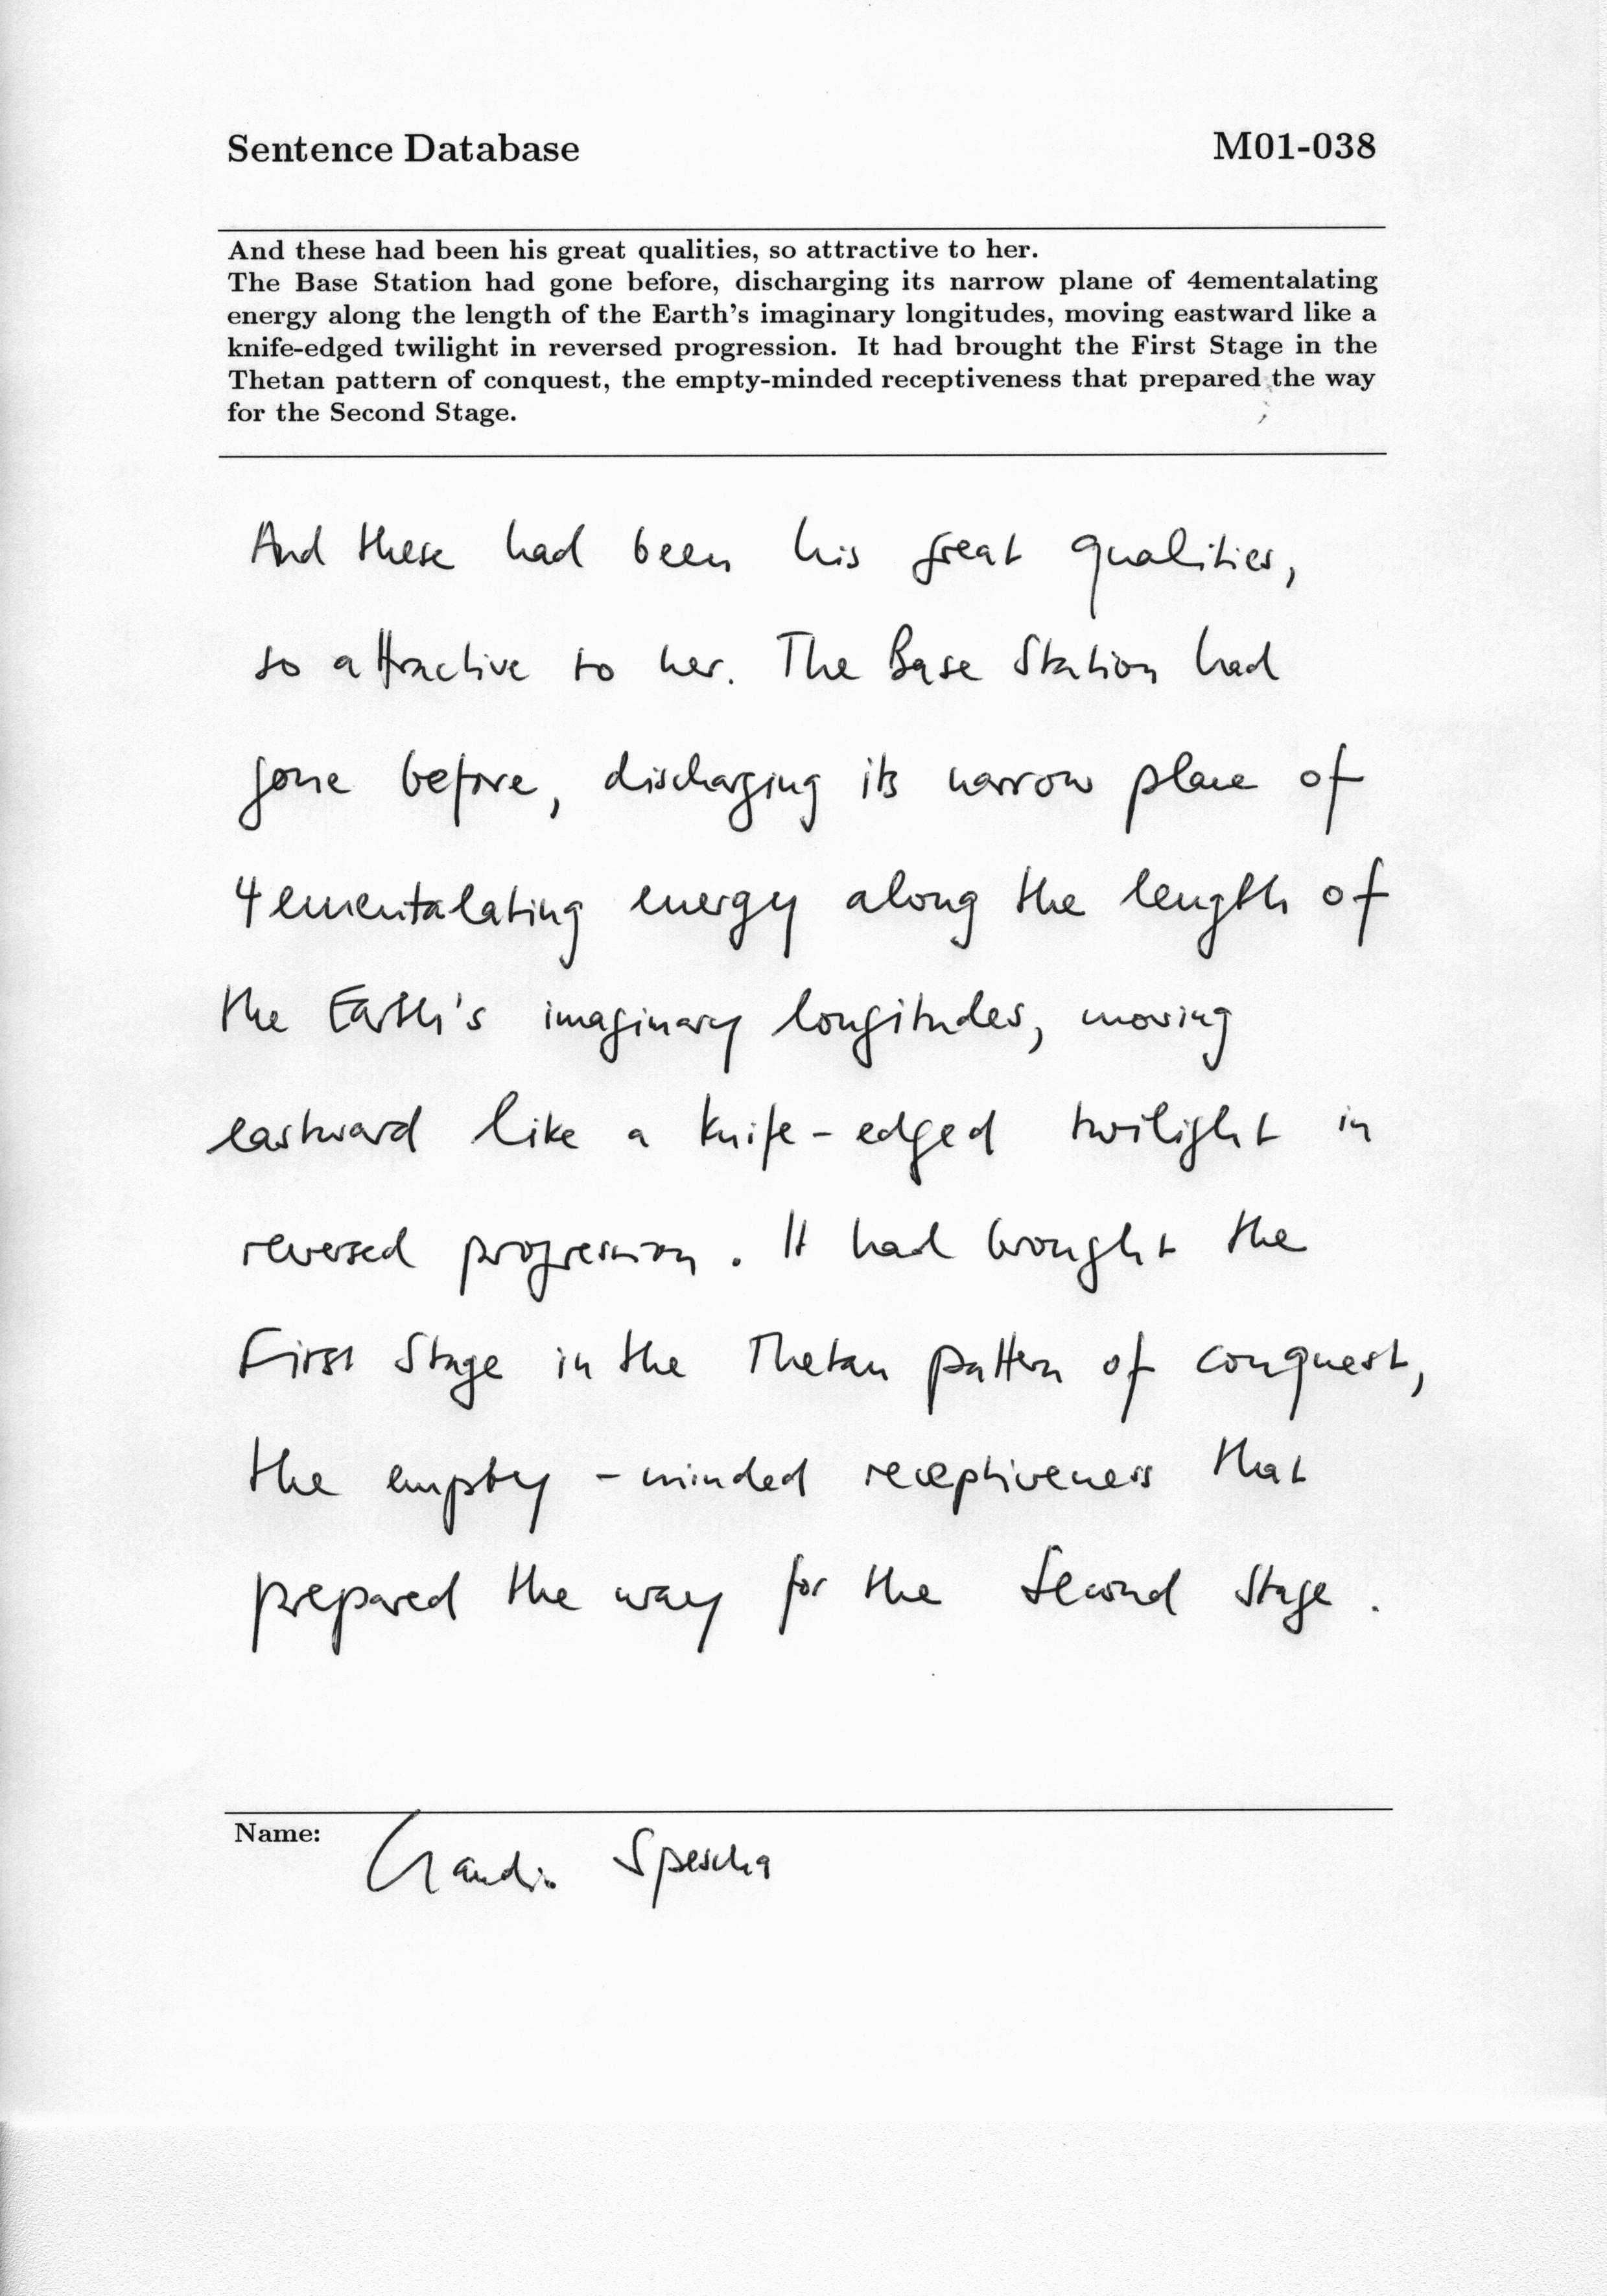 Sentence Database M01-038
And these had been his great qualities, so attractive to her.
The Base Station had gone before, discharging its narrow plane of 4ementalating
energy along the length of the Earth's imaginary longitudes, moving eastward like a
knife-edged twilight in reversed progression. It had brought the First Stage in the
Thetan pattern of conquest, the empty-minded receptiveness that prepared the way
for the Second Stage.
And these had been his great qualities,
so attractive to her. The Base Station had
gone before, discharging its narrow plane of
4ementalating energy along the length of
the Earth's imaginary longitudes, moving
eastward like a knife-edged twilight in
reversed progression. It had brought the
First Stage in the Thetan pattern of conquest,
the empty-minded receptiveness that
prepared the way for the Second Stage.
Name: Claudia Spescha